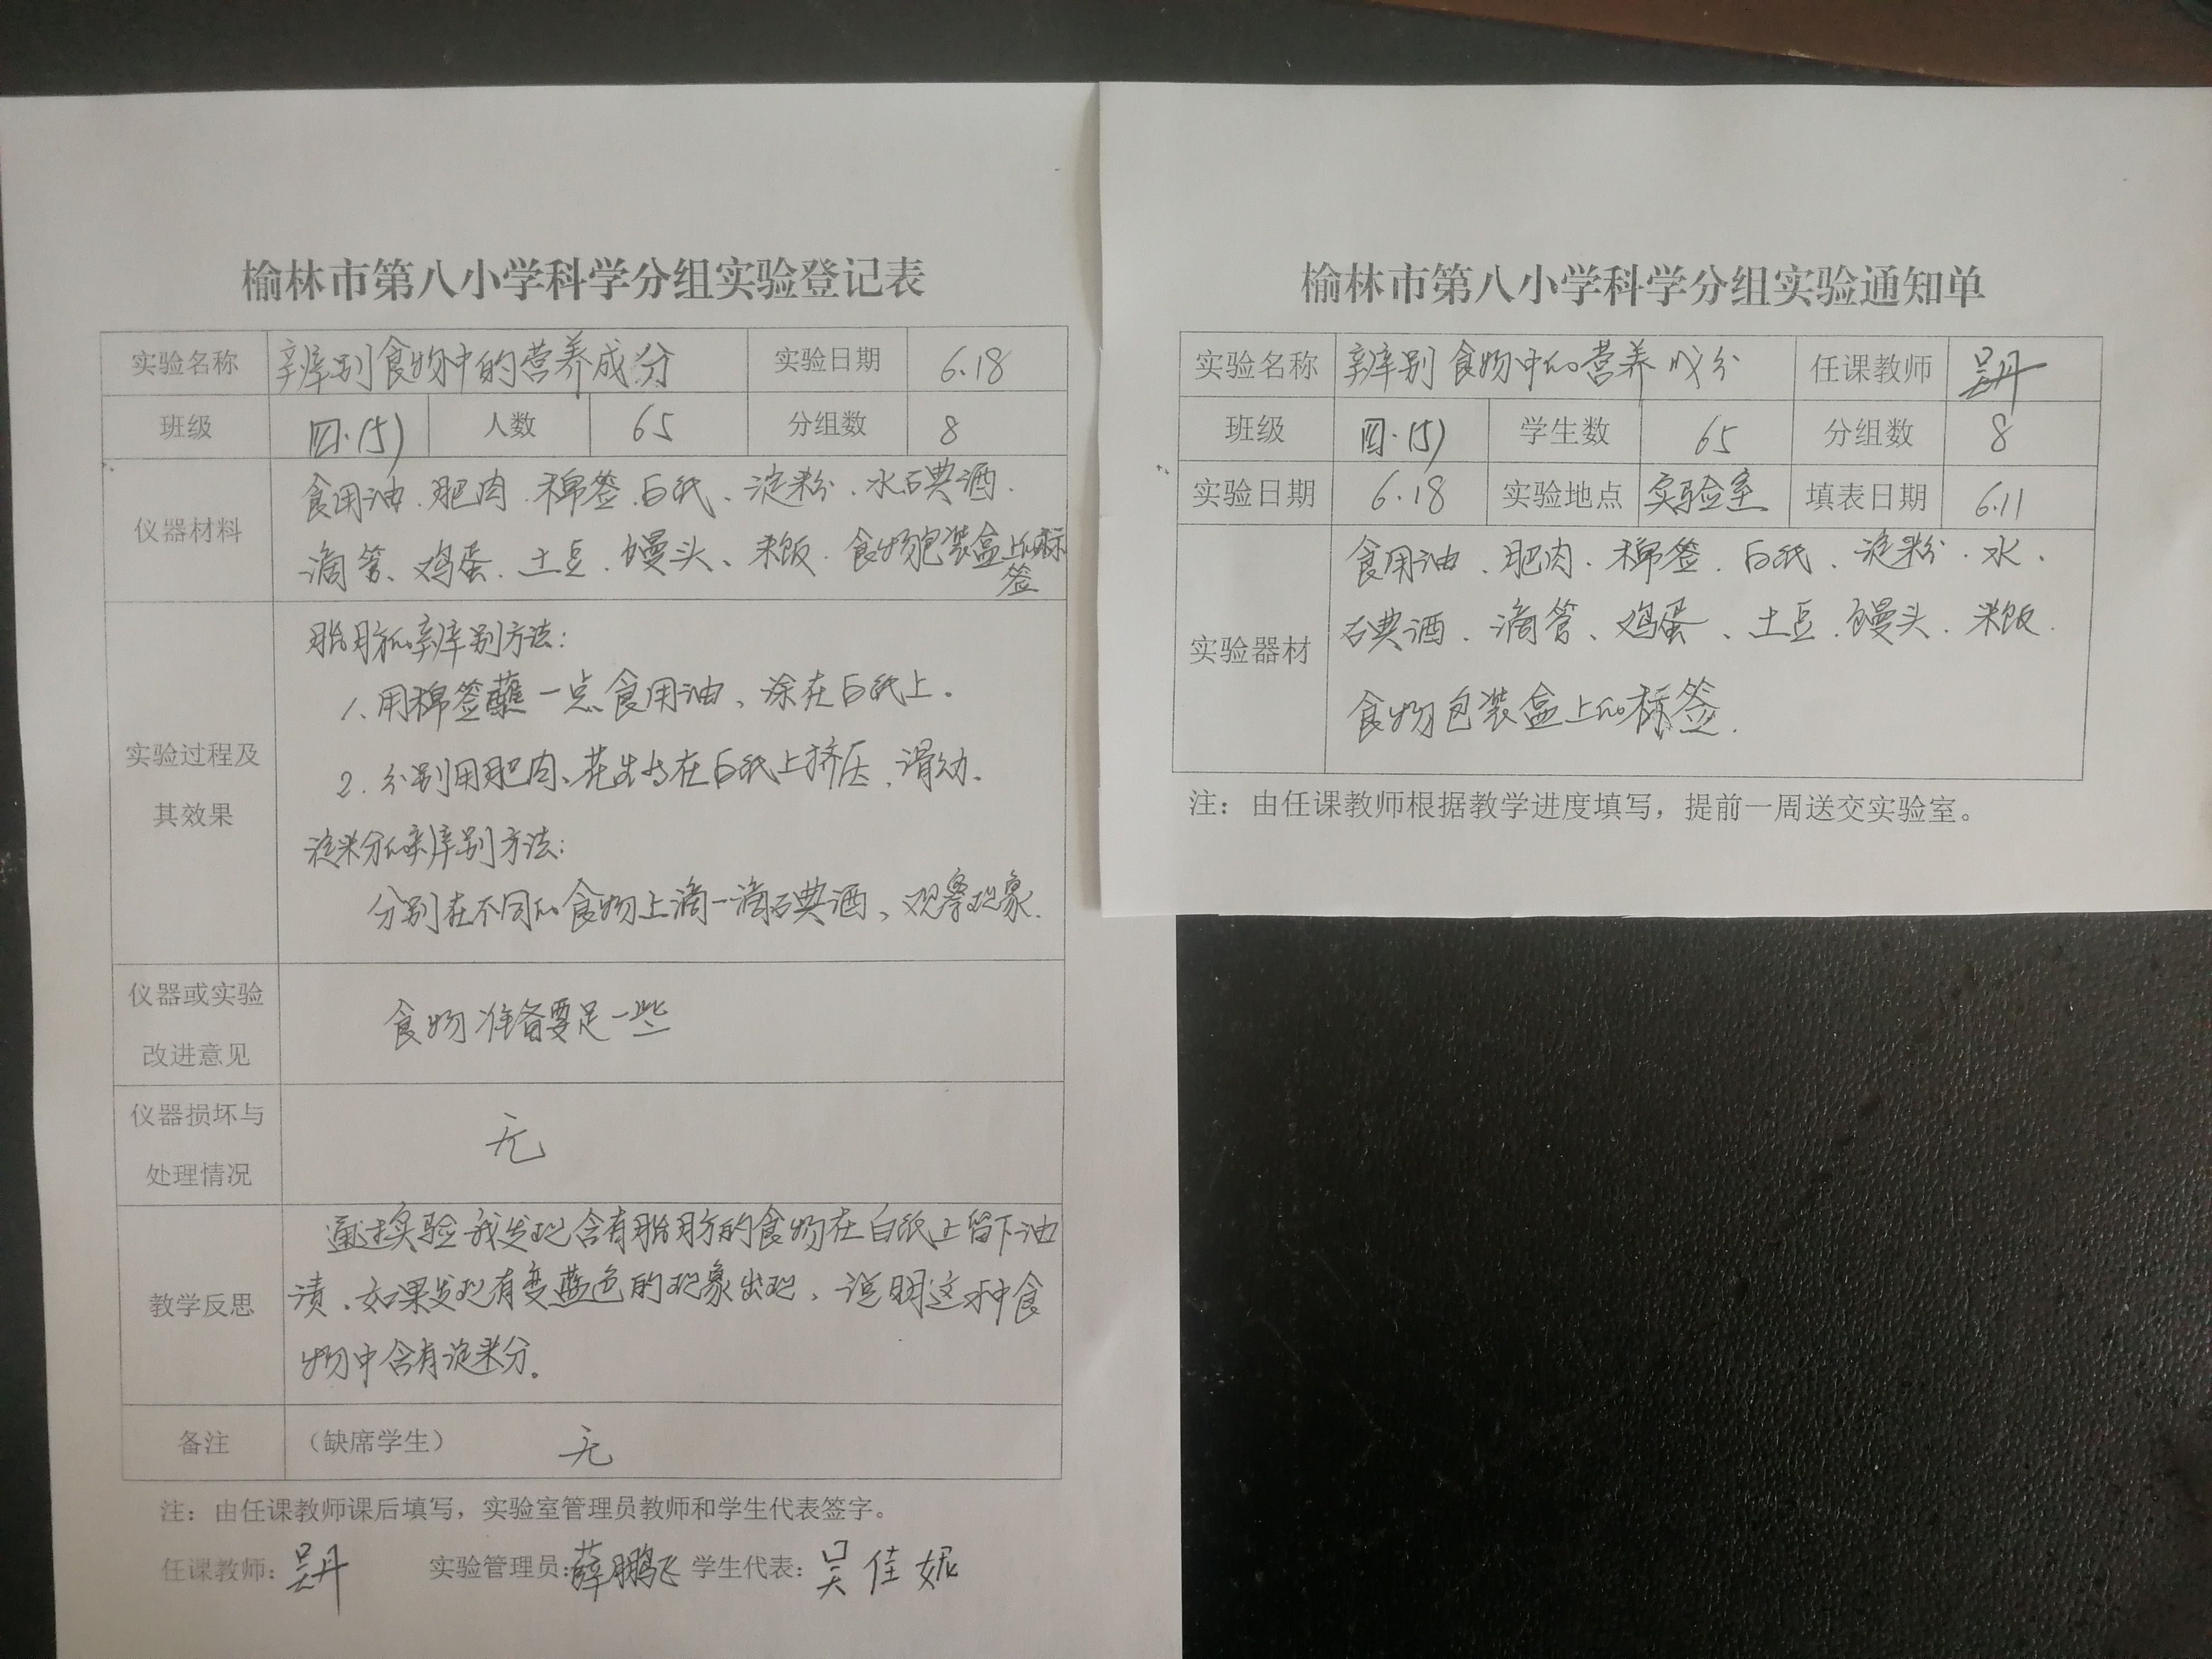 榆林市第八小学科学分组实验登记表
实验名称 辨别食物中的营养成分 实验日期 6.18
班级 四.(5) 人数 65 分组数 8
仪器材料
食用油.肥肉.棉签.白纸、淀粉.水.碘酒.
滴管、鸡蛋.土豆.馒头、米饭.食物包装盒上的标
签
实验过程及
其效果
脂肪的辨别方法:
1.用棉签蘸一点食用油、涂在白纸上.
2.分别用肥肉、花生与在白纸上挤压、滑动.
淀粉的辨别方法:
分别在不同的食物上滴一滴碘酒、观察现象.
仪器或实验
改进意见
食物准备要足一些
仪器损坏与
处理情况
无
教学反思
通过实验我发现含有脂肪的食物在白纸上留下油
渍、如果发现有变蓝色的现象出现、说明这种食
物中含有淀粉.
备注 （缺席学生） 无
注：由任课教师课后填写，实验室管理员教师和学生代表签字。
任课教师：吴丹 实验管理员：薛鹏飞 学生代表：吴佳妮
榆林市第八小学科学分组实验通知单
实验名称 辨别食物中的营养成分 任课教师 吴丹
班级 四.(5) 学生数 65 分组数 8
实验日期 6.18 实验地点 实验室 填表日期 6.11
实验器材
食用油、肥肉.棉签.白纸、淀粉.水.
碘酒.滴管、鸡蛋、土豆.馒头.米饭.
食物包装盒上的标签.
注：由任课教师根据教学进度填写，提前一周送交实验室。